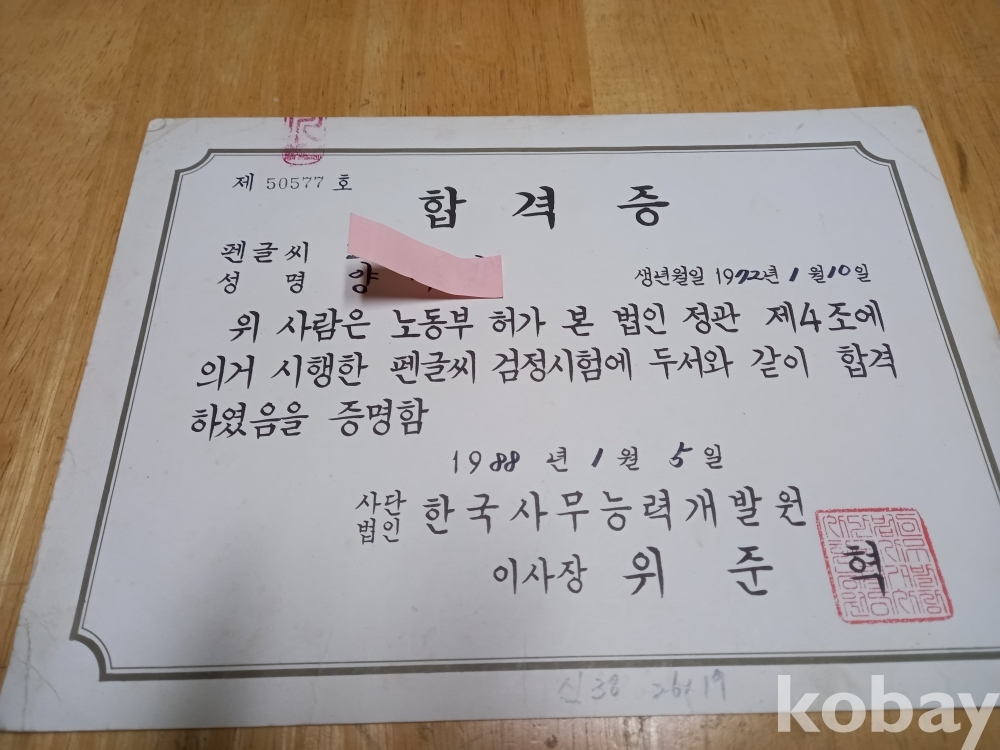 제 50577 호
합격증
펜글씨
성 명 양
생년월일 1972년 1월 10일
위 사람은 노동부 허가 본 법인 정관 제4조에
의거 시행한 펜글씨 검정시험에 두서와 같이 합격
하였음을 증명함
1988년 1월 5일
사단법인 한국사무능력개발원
이사장 위준혁
kobay